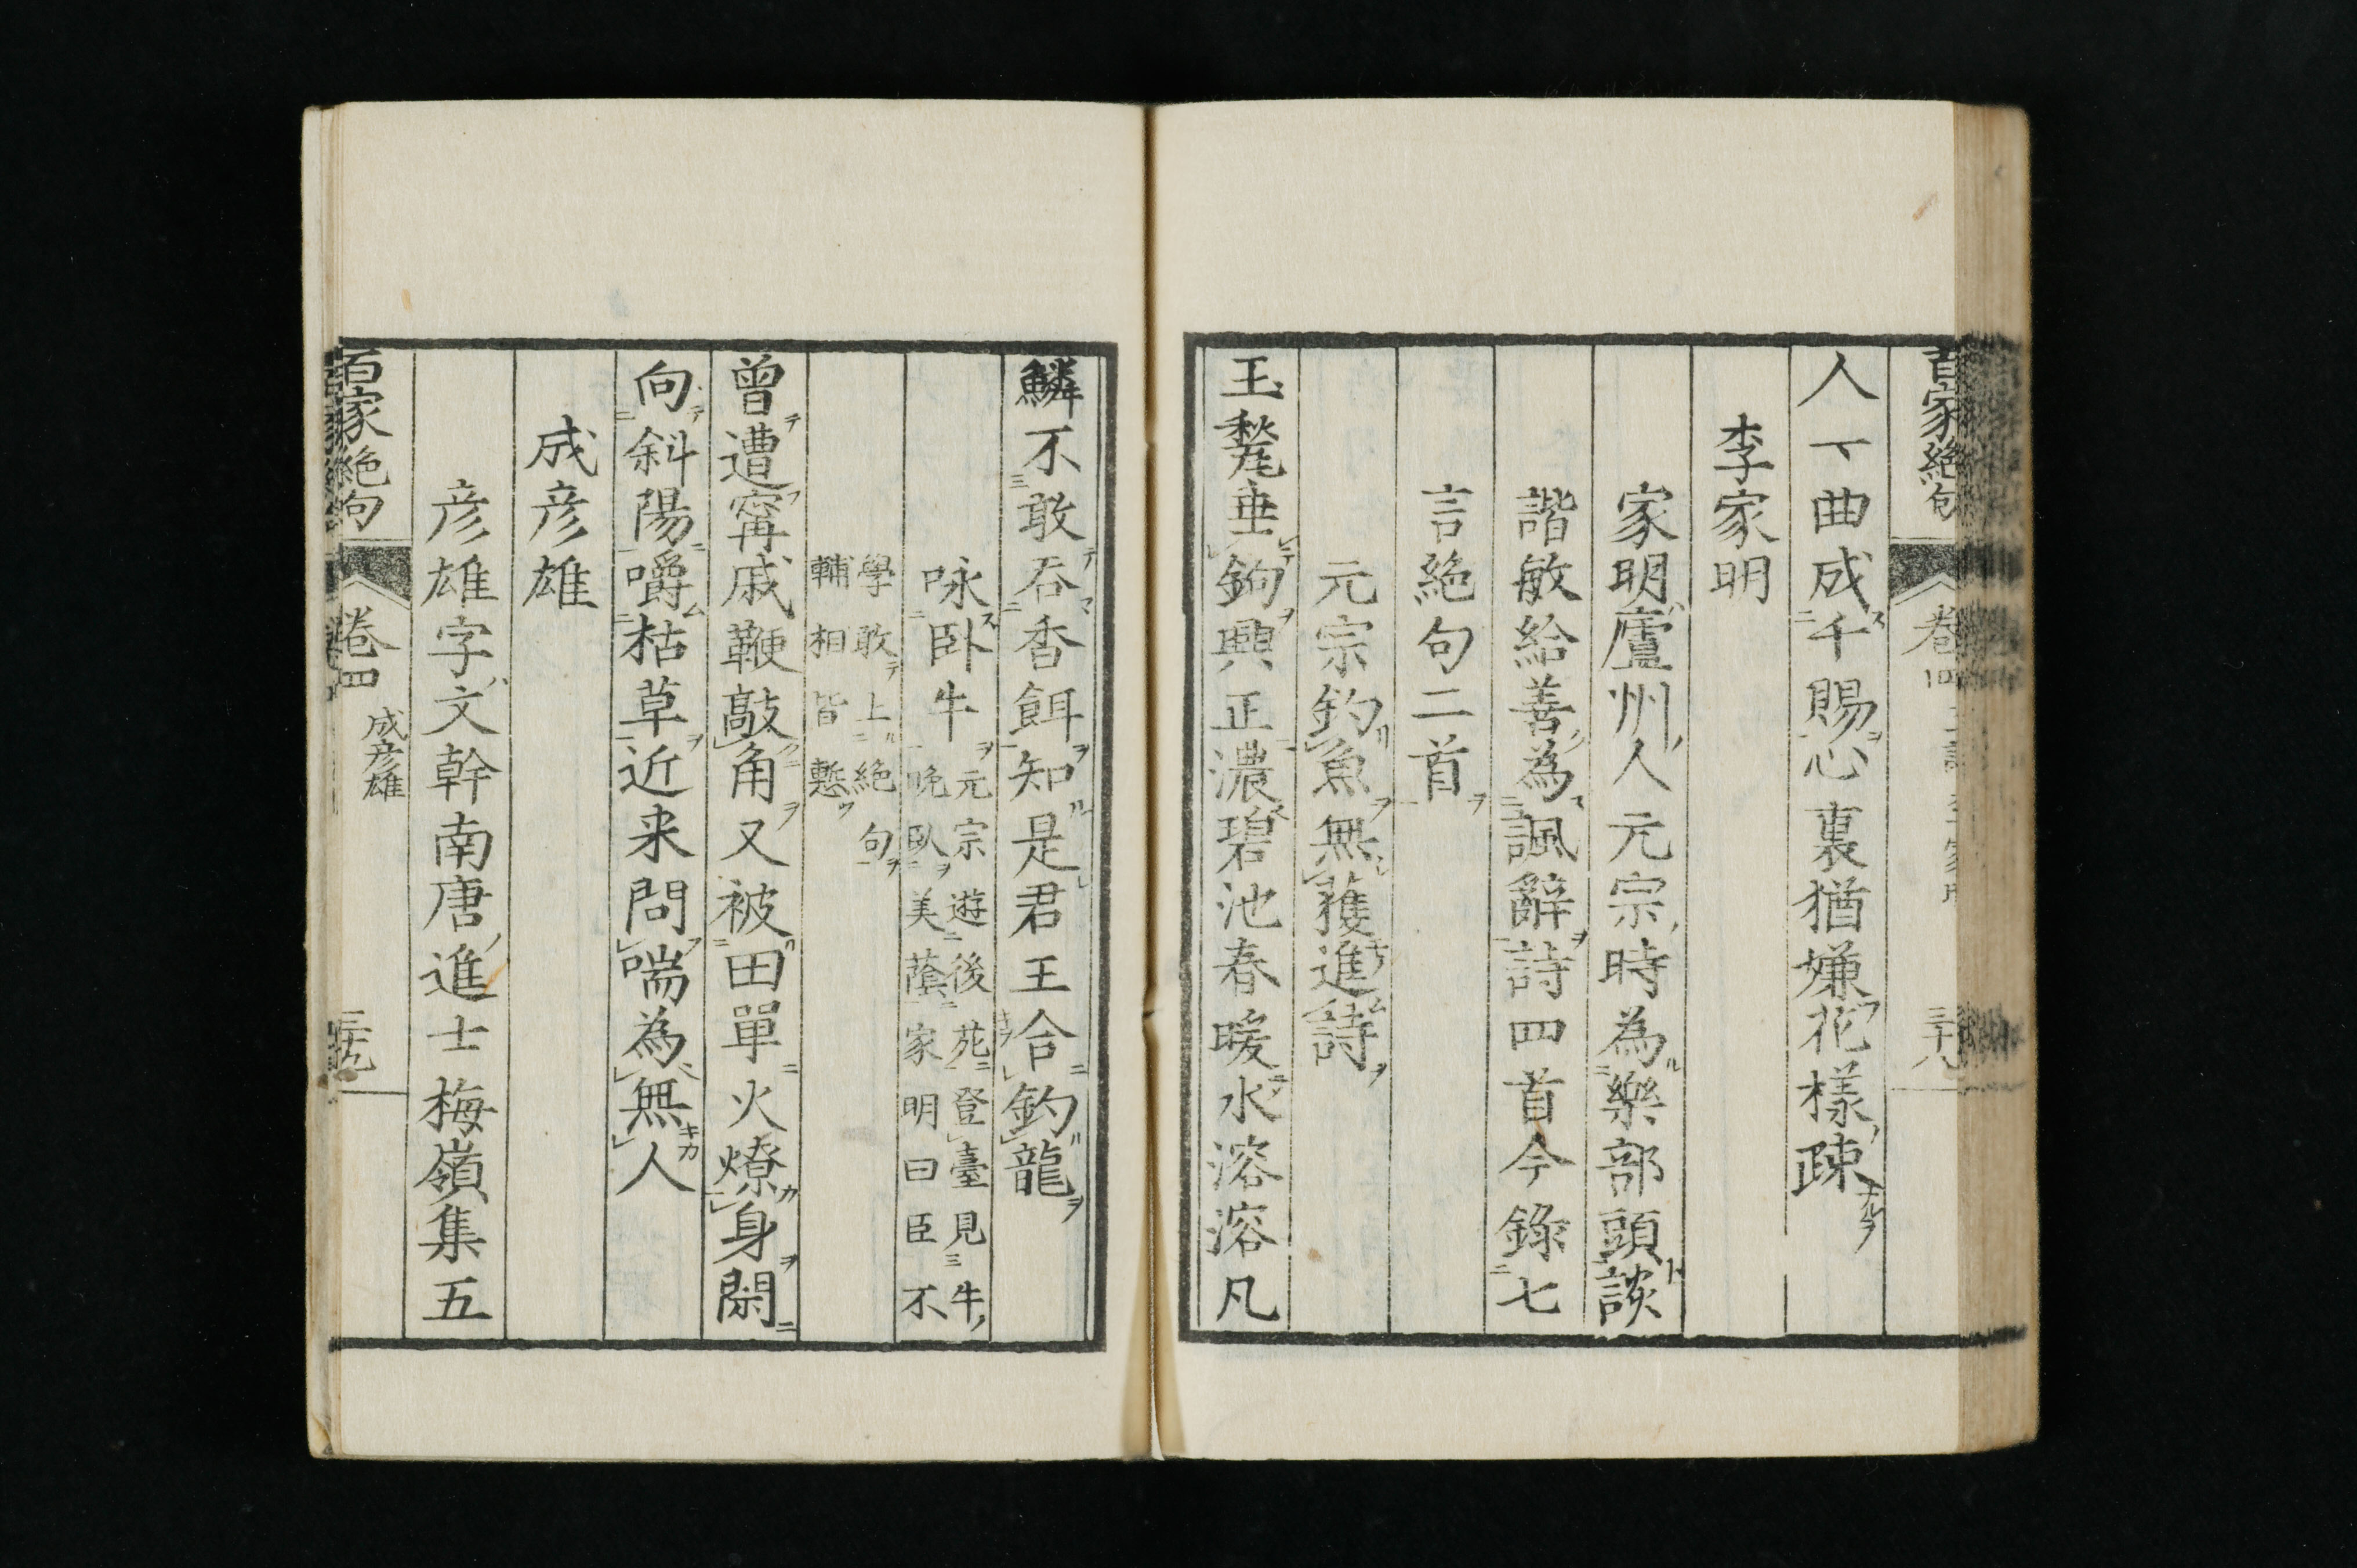 百家絶句 卷四 三十八
人一曲成千賜心裏猶嫌花樣疎
李家明
家明廬州人元宗時為樂部頭談
諧敏給善為諷辭詩四首今錄七
言絶句二首
元宗釣魚無獲進詩
玉甃垂鉤興正濃碧池春暖水溶溶凡
鱗不敢吞香餌知是君王合釣龍
咏卧牛 元宗遊後苑登臺見牛
晩臥美蔭家明曰臣不
學敢上絶句
輔相皆慙
曾遭甯戚鞭敲角又被田單火燎身閑
向斜陽嚼枯草近来問喘為無人
成彦雄
彦雄字文幹南唐進士梅嶺集五
百家絶句 卷四 成彦雄 三十九